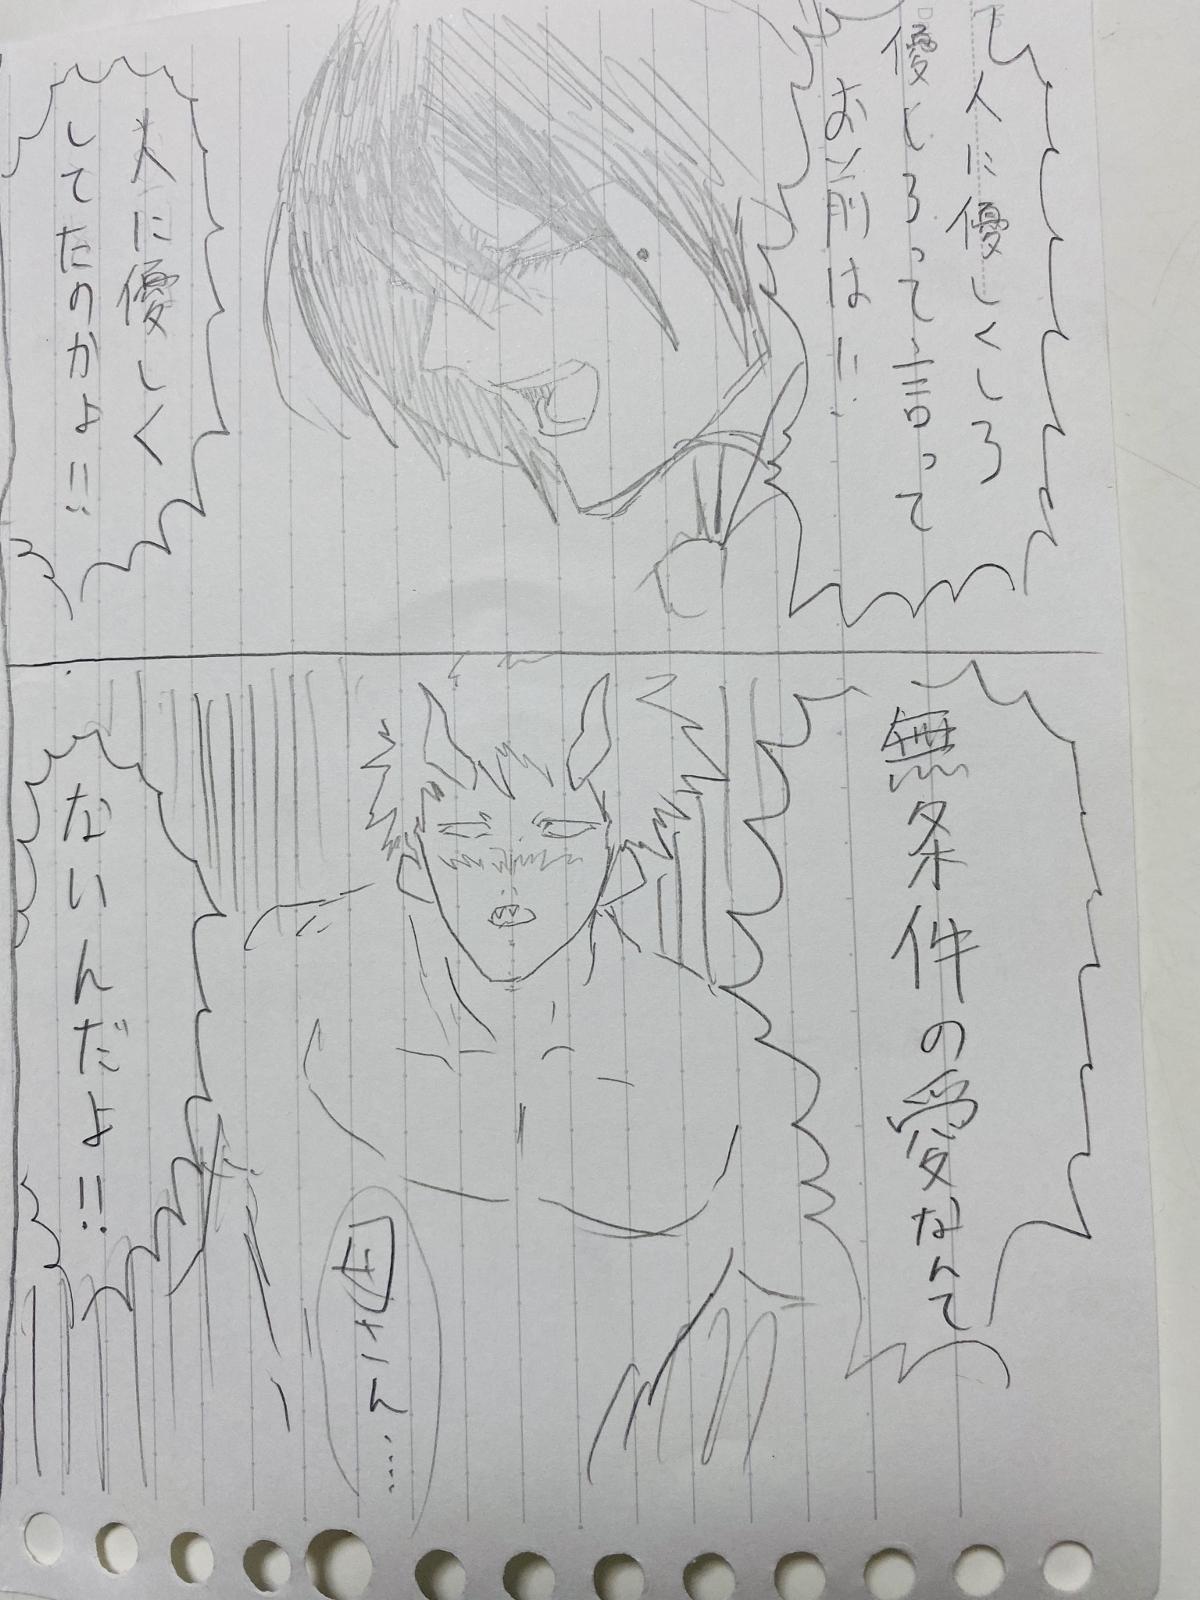 人に優しくしろ
優しろって言って
お前は!!
人に優しく
してたのかよ!!
無条件の愛なんて
ないんだよ!!